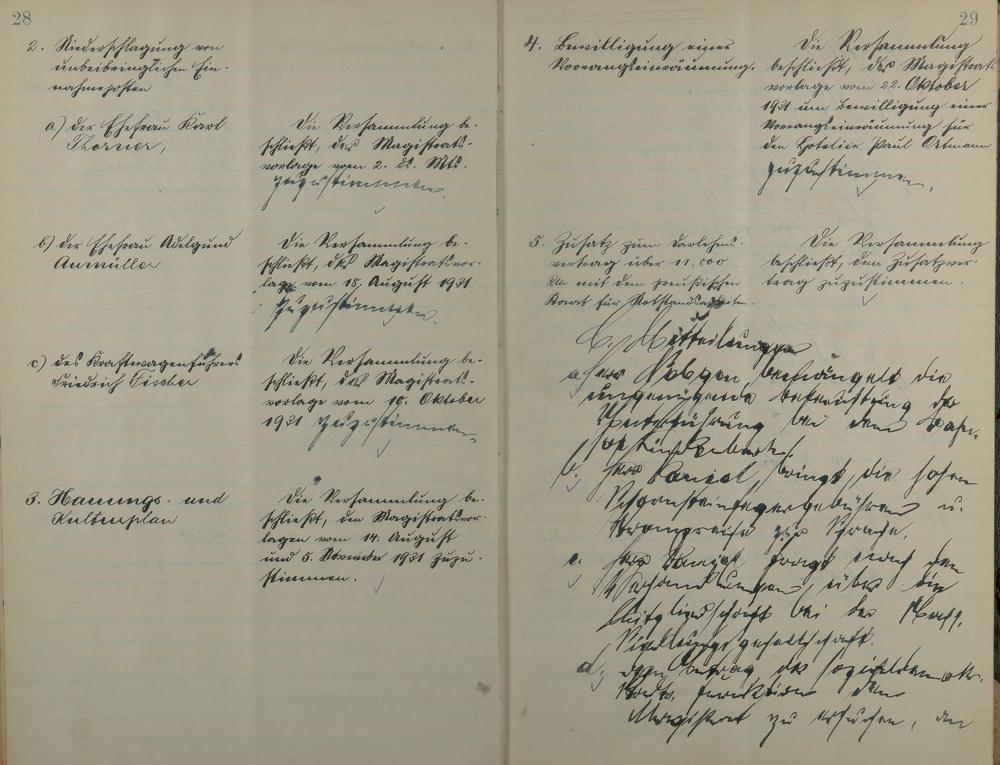 28
2. Niederschlagung von
unbeibringlichen Ein-
nahmeposten
a) der Ehefrau Karl
Thorner,
Die Versammlung be-
schließt, der Magistrats-
vorlage vom 2. ds. Mts.
zuzustimmen.
b) der Ehefrau Adelgund
Aumüller
Die Versammlung be-
schließt, der Magistratsvor-
lage vom 18. August 1931
zuzustimmen.
c) des Kraftwagenführers
Friedrich
Die Versammlung be-
schließt, der Magistrats-
vorlage vom 10. Oktober
1931 zuzustimmen.
3. Hauungs- und
Kulturplan
Die Versammlung be-
schließt, den Magistratsvor-
lagen vom 14. August
und 5. November 1931 zuzu-
stimmen.
29
4. Bewilligung einer
Vorrangseinräumung.
Die Versammlung
beschließt, der Magistrats-
vorlage vom 22. Oktober
1931 um Bewilligung einer
Vorrangseinräumung für
den Hotelier Paul Ortmann
zuzustimmen.
5. Zusatz zum Darlehens-
vertrag über 11.500
RM mit dem preußischen
Staat für Notstandsarbeiten.
Die Versammlung
beschließt, dem Zusatzver-
trag zuzustimmen.
C. Mitteilungen
a) Herr bemängelt die
ungenügende Beleuchtung der
Unterführung bei dem Bahn-
hof
b. Herr Daniel bringt die hohen
Schornsteinfegergebühren u.
Strompreise zur Sprache.
c. Herr Daniel fragt nach den
Verhandlungen über die
Mitgliedschaft bei der
Siedlungsgesellschaft.
d. Dem Antrag der sozialdemokr.
Fraktion den
Magistrat zu ersuchen, an